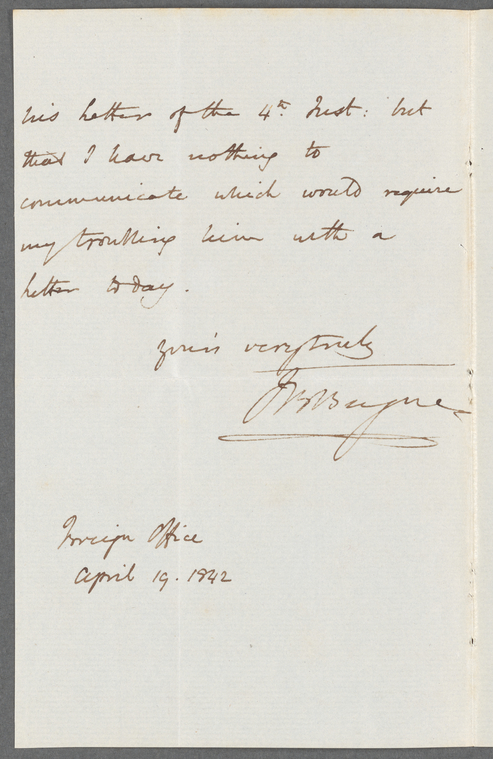 his letter of the 4th Inst: but
that I have nothing to
communicate which would require
my troubling him with a
letter to day.
yours very truly
Foreign Office
April 19. 1842